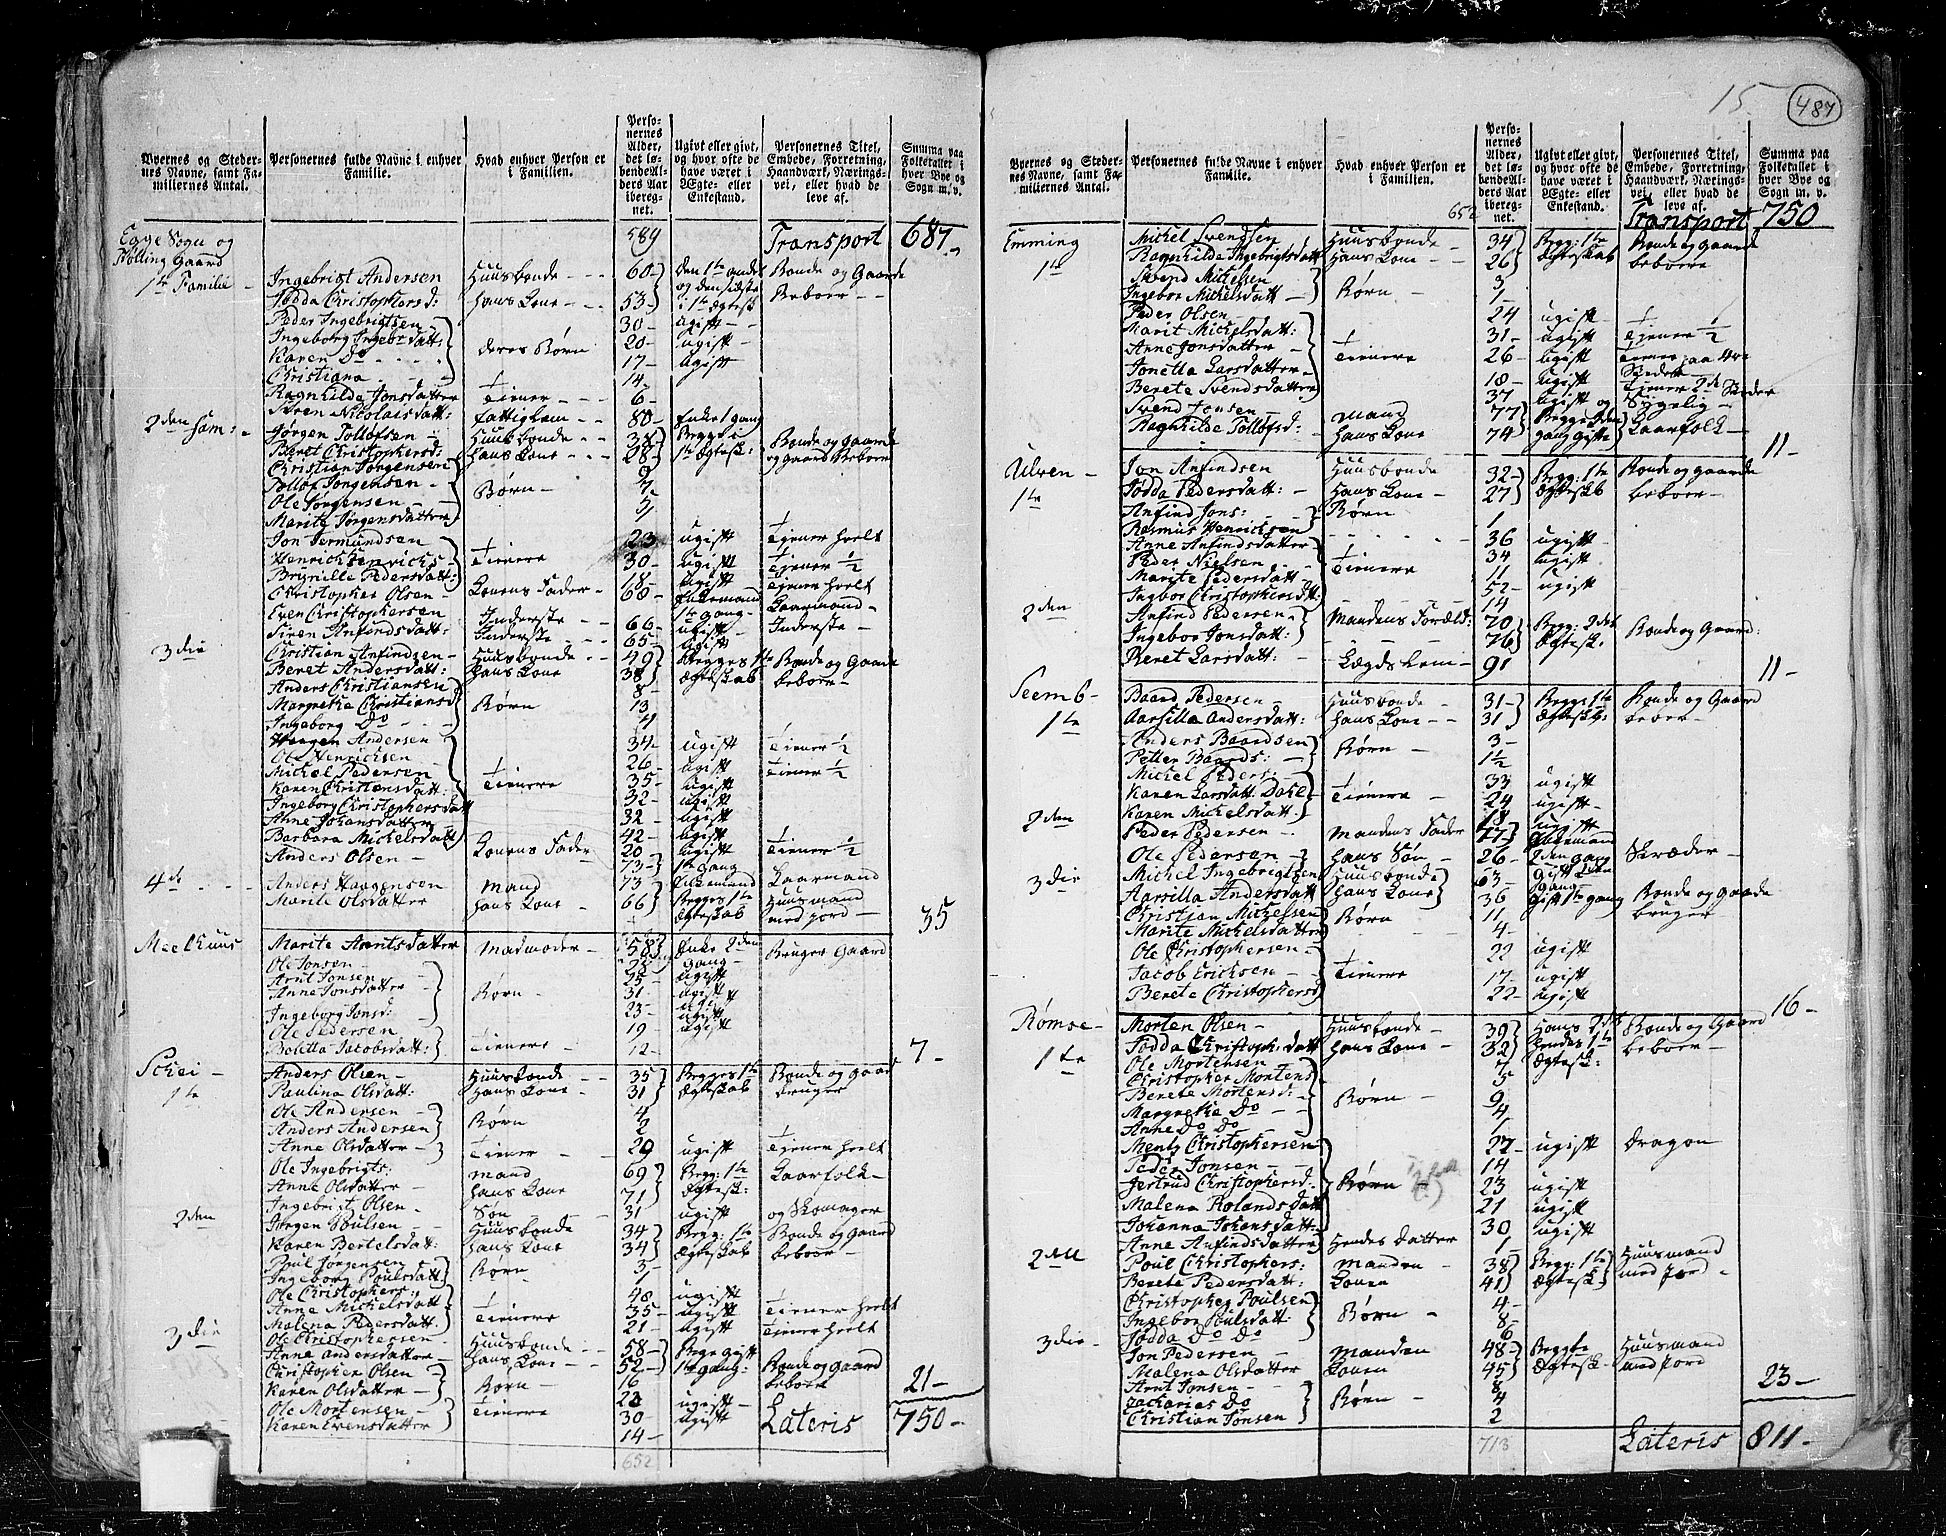 15
487
Byernes og Stedernes Navne, samt Familiernes Antal.
Personernes fulde Navne i enhver Familie.
Hvad enhver Person er i Familien.
Personernes Alder, det løbende Alders Aar iberegnet.
Ugivt eller givt, og hvor ofte de have været i Ægte- eller Enkestand.
Personernes Titel, Embede, Forretning, Haandværk, Næringsvei, eller hvad de leve af.
Summa paa Folketallet i hver Bye og Sogn m. v.
Egge Sogn og 589 Transport 687
Følling Gaard
1te Familie Ingebrigt Andersen Huusbonde 60 den 1te andet Bonde og Gaard
Jødda Christophersd: hans Kone 53 og den sidste i 1te Ægtesk Beboer
Peder Ingebrigtsen 30 ugift
Ingeborg Ingebrdatt: deres Børn 20 ugift
Karen Do 17 ugift
Christiana 14
Ragnhilde Jonsdatter Tiener 6
Søren Nicolaisdatt: fattiglem 80 Enke 1 gang
2den fam: Jørgen Tolløfsen Huusbonde 38 Begge i Bonde og Gaard
Beret Christophersd: hans Kone 28 1te Ægtesk: og gaard Beboer
Christian Jørgensen 9
Tollof Jørgensen Børn 7
Ole Jørgensen 5
Marite Jørgensdatter 1
Jon Jermundsen 23 ugift Tiener heelt
Henrich Henrichs Tienere 30 ugift Tiener ½
Brynille Pedersdatt: 18 ugift Tiener heelt
Christopher Olsen Konens Fader 68 Enkemand 1te gang Kaarmand
Even Christophersen Inderste 66 ugift Inderste
Siren Anfindsdatt: Inderste 65 ugift
3die Christian Anfindsen Huusbonde 49 Begges 1te Bonde og Gaard
Beret Andersdatt: hans Kone 38 Ægteskab beboer
Anders Christiansen 8
Margrethe Christiansd Børn 13
Ingeborg Do 4
Haagen Andersen 34 ugift Tiener ½
Ole Henrichsen 26 ugift Tiener ½
Michel Pedersen 35 ugift
Karen Christensdatt: Tienere 32 ugift
Ingeborg Christophersdatt 32 ugift
Anne Johansdatter 42 ugift
Barbara Michelsdatt 20 ugift Tiener ½
Anders Olsen Konens Fader 73 1te gang Kaarmand
4de Anders Haagensen Mand 73 Begges 1te Huusmand
Marite Olsdatter hans Kone 66 Ægteskab med jord 35
Meelhuus Marite Arntsdatter Madmoder 58 Enke 2den gang Bruger Gaard
Ole Jonsen 25 ugift
Arnt Jonsen 25 ugift
Anne Jonsdatter Børn 31 ugift
Ingeborg Jonsd: 23 ugift
Ole Pedersen 19 ugift
Boletta Jacobsdatt: Tienere 12 7
Schei Anders Olsen Huusbonde 35 Begges 1te Bonde og gaard
1te Paulina Olsdatt: hans Kone 31 Ægteskab bruger
Ole Andersen 4
Anders Andersen Børn 2
Anne Olsdatter Tiener 29 ugift Tiener heelt
Ole Ingebrigts: Mand 69 Begg: 1te Kaarfolk
Anne Olsdatter hans Kone 71 Ægtesk:
Ingebrigt Olsen Søn 31 ugift og Skomager
2den Jørgen Poulsen Huusbonde 34 Begg: 1te Bonde og gaard
Karen Bertelsdatt: hans Kone 34 Ægteskab beboer
Poul Jørgensen Børn 3
Ingeborg Poulsdatt 1
Ole Christophers: 48 ugift
Anne Michelsdatt Tienere 35 ugift Tiener heelt
Malena Pedersdatt: 21 ugift Tiener heelt
3die Ole Christophersen Huusbonde 58 Begge gift
Anne Andersdatter hans Kone 52 1te gang Bonde og gaard
Christopher Olsen 16 beboer
Karen Olsdatter Børn 23 ugift 21
Ole Mortensen Tienere 30 ugift Lateris 750
Karen Evensdatter 14
652
652 Transport 750
Emming Michel Svendsen Huusbonde 34 Begg: 1te Bonde og Gaard
1te Ragnhilde Ingebrigtsdatt hans Kone 26 Ægteskab beboere
Svend Michelsen 3
Ingebor Michelsdatt Børn 1
Peder Olsen 24 ugift Tiener ½
Marit Michelsdatt: 31 ugift
Anne Jonsdatter Tienere 26 ugift
Jonetta Larsdatter 18 ugift
Berete Svendsdatter 37 ugift Sygelig
Svend Jonsen Mand 77 Begge 2den
Ragnhilde Tollofsd: hans Kone 74 gang gifte Kaarfolk 11
Ulven Jon Anfindsen Huusbonde 32 Begg: 1te Bonde og gaard
1te Jødda Pedersdatt: hans Kone 27 Ægteskab beboer
Anfind Jons: Børn 1
Rasmus Henrichsen 36 ugift
Anne Anfindsdatter 34 ugift
Peder Nielsen Tienere 11
Marite Pedersdatt 52 ugift
Ingbor Christophersdtt: 14
2den Anfind Pedersen Mandens Foræld: 70 Begg: 2det Bonde og Gaard:
Ingebor Jonsdatt: 76 Ægtesk:
Beret Larsdatt: Lægds Lem 91 11
Seemb Baard Pedersen Huusbonde 31 Begge 1te Bonde og Gaard
1te Aarsilla Andersdatt: hans Kone 31 Ægteskb: beboer
Anders Baardsen 3
Petter Baards: Børn 1½
Michel Peders: 33 ugift
Karen Larsdatt: Dahl Tienere 24 ugift
Karen Michelsdatt 18 ugift
2den Peder Pedersen Mandens Fader 77 Enkemand
Ole Pedersen hans Søn 26 2den gang Skræder
3die Michel Ingebrigtsen Huusbonde 63 Gift 2den gang
Aarsilla Andersdatt hans Kone 36 Gift 1te gang Bonde og Gaard
Christian Michelsen Børn 11 bruger
Marite Michelsdatter 4
Ole Christophersen 22 ugift
Jacob Ericksen Tienere 17 ugift
Berete Christophersd 22 ugift 16
Rømoe Morten Olsen Huusbonde 39 Hans 2det Bonde og Gaard
1te Jødda Christoph: datt hans Kone 32 hendes 1te Ægtesk: beboer
Ole Mortensen 7
Christopher Mortens 5
Berete Mortensd: Børn 9
Margrethe Do 4
Anne Do Do 1
Mentz Christophersen 27 ugift Dragon
Peder Jonsen 14
Gertrud Christophersd: Børn 23 ugift
Malena Rolandsdatt 21 ugift
Johanna Johansdatt: 30 ugift
Anne Anfindsdatter Hendes Datter 1
2den Poul Christophers: Manden 38 Begg: 1te Huusmand
Berete Pedersdatt: Konen 41 Ægtesk: med jord
Christopher Poulsen 4
Ingebor Poulsdatt: Børn 8
Jødda Do Do 6
3die Jon Pedersen Manden 48 Begge Huusmand
Malena Olsdatter Konen 45 Ægtesk: med jord
Arnt Jonsen 8
Zacharies Do Børn 4 23
Christian Jonsen 2
713 Lateris 811